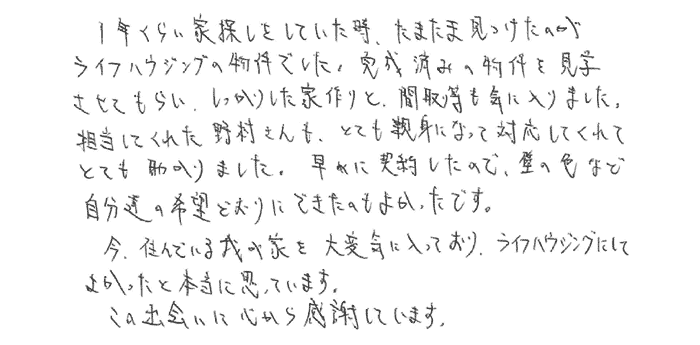 1年くらい家探しをしていた時、たまたま見つけたのが
ライフハウジングの物件でした。完成済みの物件を見学
させてもらい、しっかりした家作りと、間取等も気に入りました。
担当してくれた野村さんも、とても親身になって対応してくれて
とても助かりました。早めに契約したので、壁の色など
自分達の希望どおりにできたのもよかったです。
今、住んでいる我が家を大変気に入っており、ライフハウジングにして
よかったと本当に思っています。
この出会いに心から感謝しています。